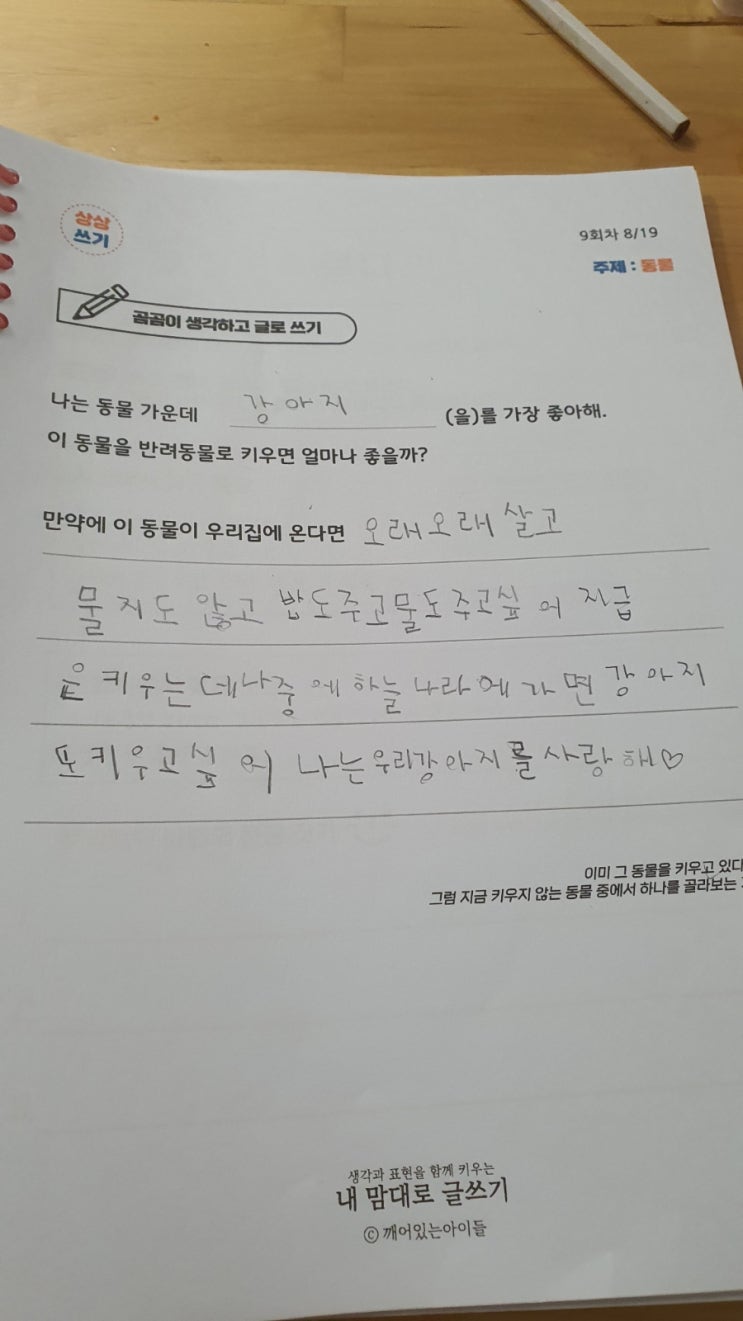 상상
쓰기
9회차 8/19
주제 : 동물
곰곰이 생각하고 글로 쓰기
나는 동물 가운데 강아지 (을)를 가장 좋아해.
이 동물을 반려동물로 키우면 얼마나 좋을까?
만약에 이 동물이 우리집에 온다면 오래오래 살고
물지도 않고 밥도주고물도주고싶어 지금
은 키우는데나중에하늘나라에가면강아지
또키우고싶어 나는우리강아지를사랑해♡
이미 그 동물을 키우고 있다
그럼 지금 키우지 않는 동물 중에서 하나를 골라보는
생각과 표현을 함께 키우는
내 맘대로 글쓰기
ⓒ 깨어있는아이들